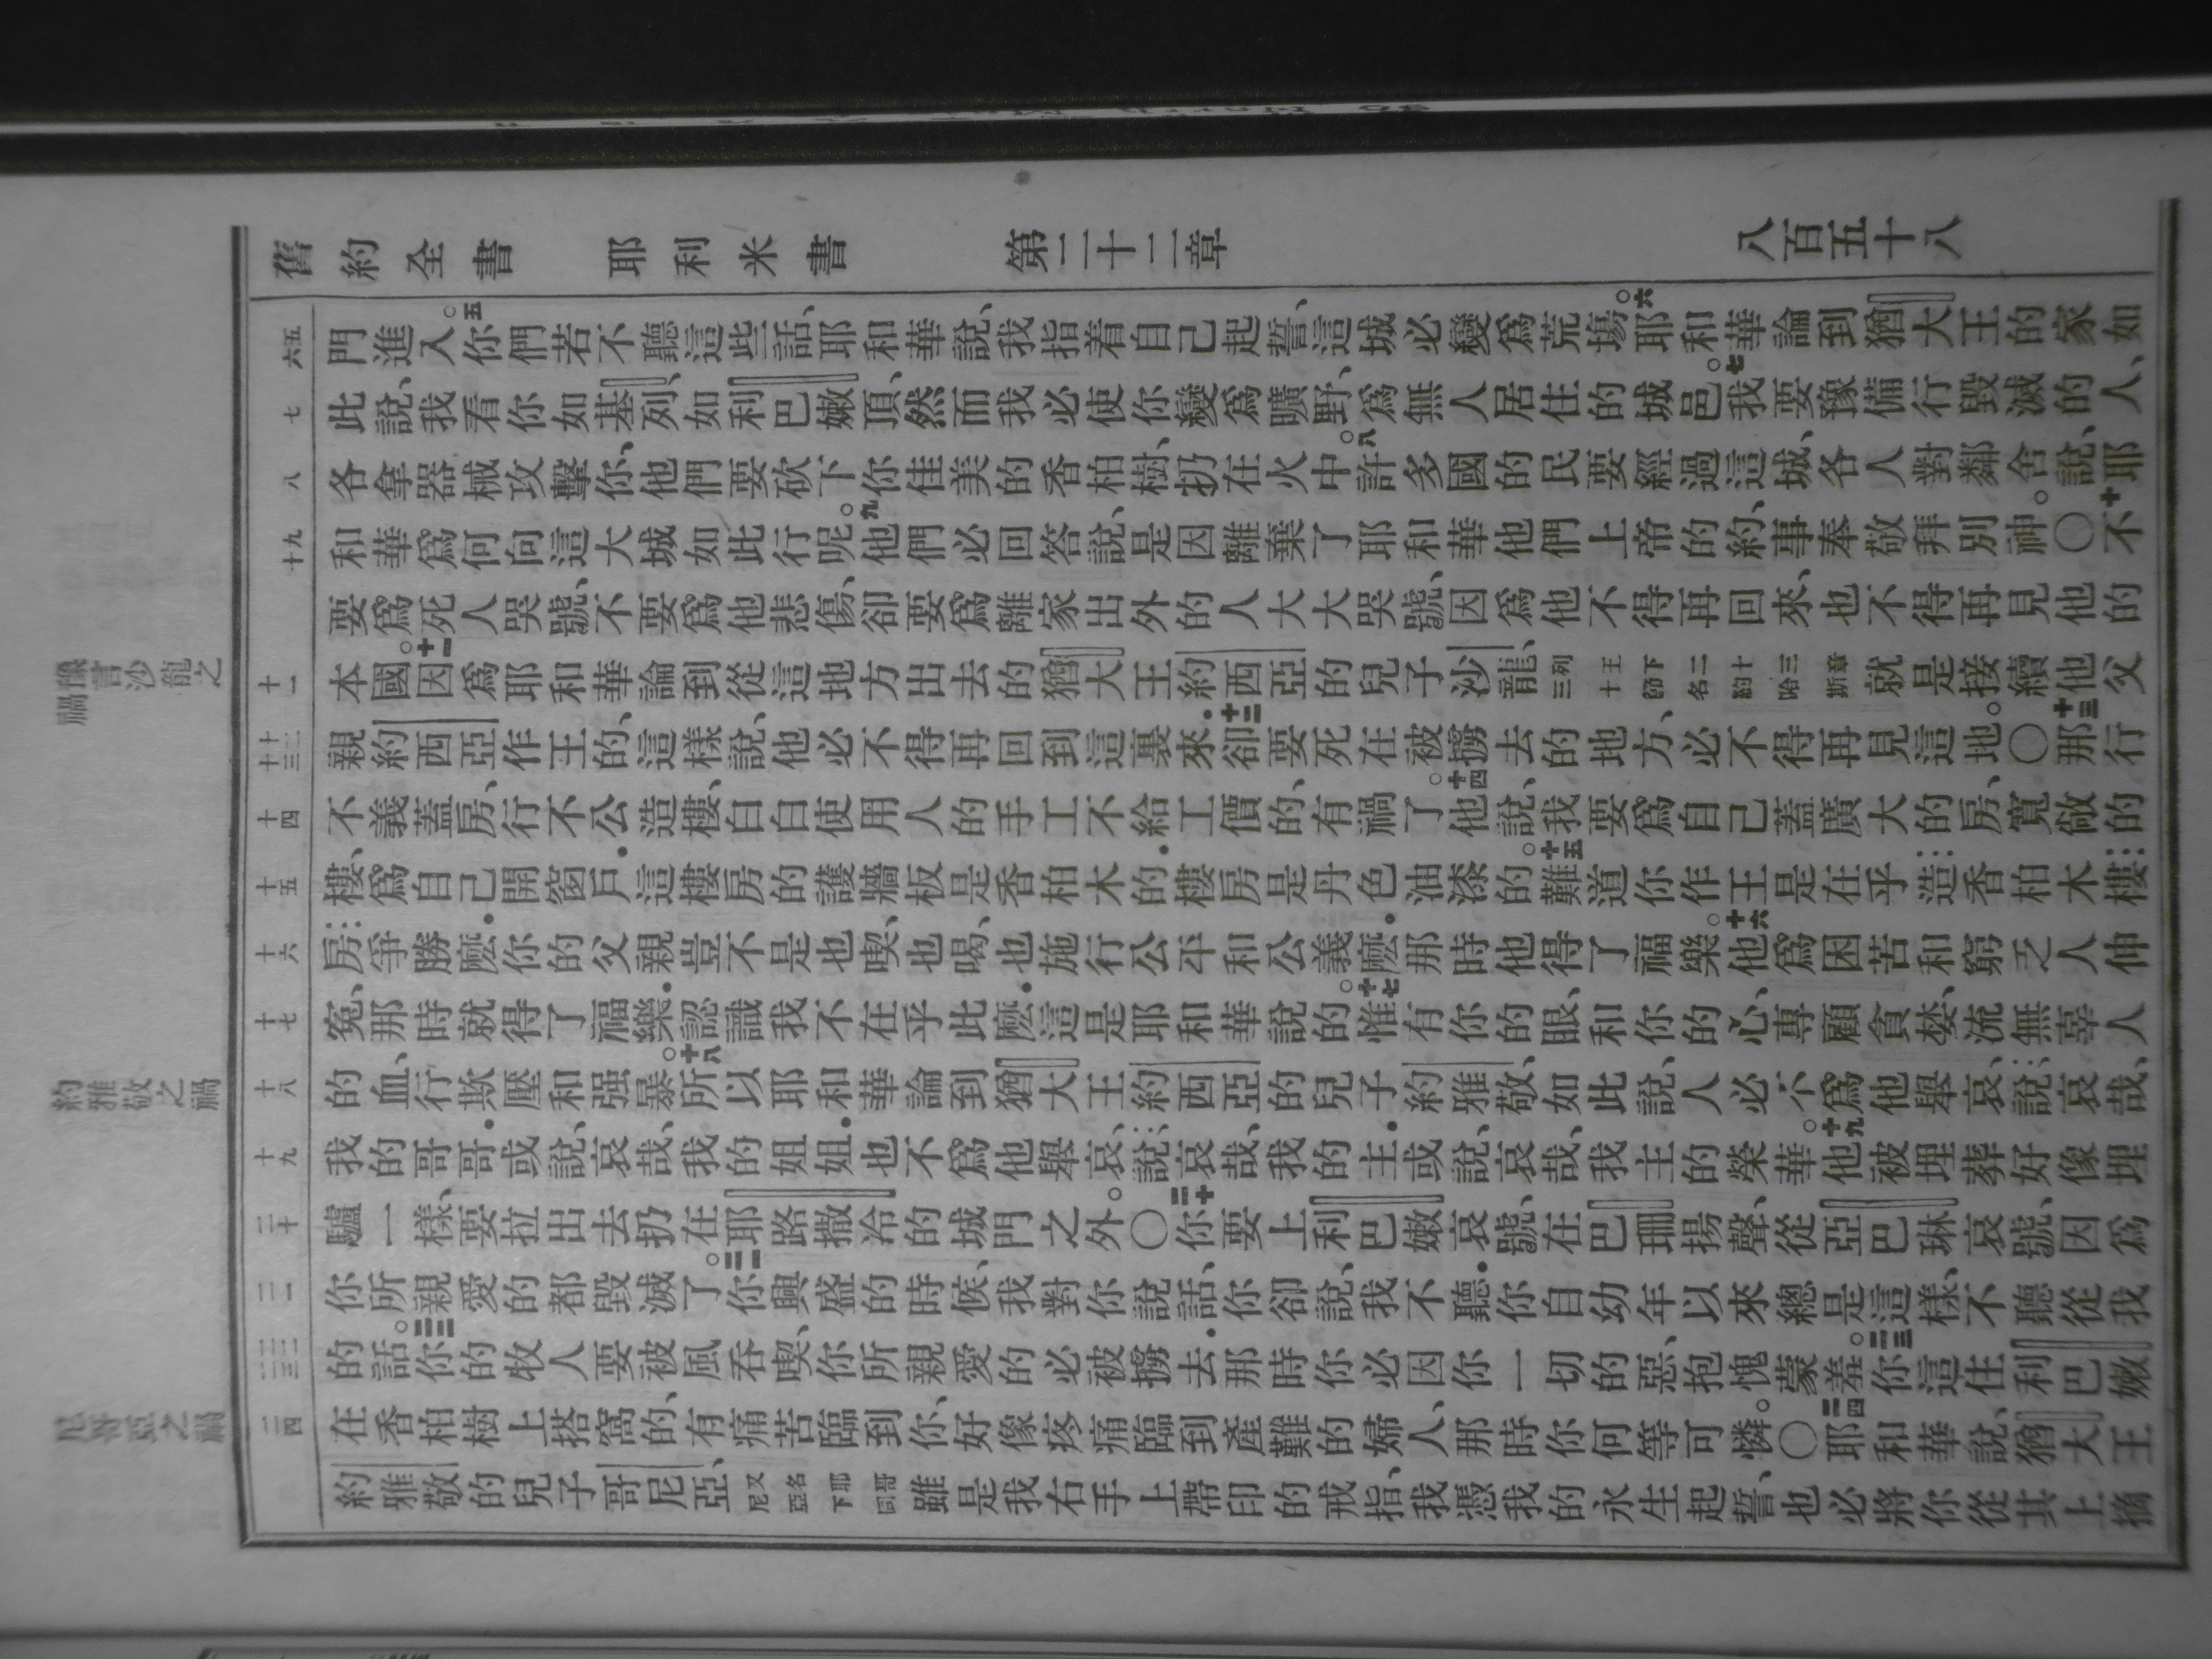 舊約全書 耶利米書 第二十二章 八百五十八
門進入。五你們若不聽這些話、耶和華說、我指着自己起誓、這城必變爲荒場。六耶和華論到猶大王的家如
此說、我看你如基列、如利巴嫩頂、然而我必使你變爲曠野、爲無人居住的城邑。七我要豫備行毀滅的人、
各拿器械攻擊你、他們要砍下你佳美的香柏樹、扔在火中。八許多國的民要經過這城、各人對鄰舍說、耶
和華爲何向這大城如此行呢。九他們必回答說、是因離棄了耶和華他們上帝的約、事奉敬拜別神。○十不
要爲死人哭號、不要爲他悲傷、卻要爲離家出外的人大大哭號、因爲他不得再回來、也不得再見他的
本國。十一因爲耶和華論到從這地方出去的猶大王約西亞的兒子沙龍、列王下二十三章三十節名約哈斯就是接續他父
親約西亞作王的、這樣說、他必不得再回到這裏來．十二卻要死在被擄去的地方、必不得再見這地。○十三那行
不義蓋房、行不公造樓、白白使用人的手工不給工價的、有禍了。十四他說、我要爲自己蓋廣大的房、寬敞的
樓、爲自己開窗戶．這樓房的護牆板是香柏木的．樓房是丹色油漆的。十五難道你作王是在乎造香柏木樓
房爭勝麼．你的父親豈不是也喫、也喝、也施行公平和公義麼．那時他得了福樂。十六他爲困苦和窮乏人伸
冤、那時就得了福樂．認識我不在乎此麼．這是耶和華說的。十七惟有你的眼、和你的心、專顧貪婪、流無辜人
的血、行欺壓和强暴。十八所以耶和華論到猶大王約西亞的兒子約雅敬、如此說、人必不爲他舉哀、說、哀哉、
我的哥哥．或說、哀哉、我的姐姐．也不爲他舉哀、說、哀哉、我的主．或說、哀哉、我主的榮華。十九他被埋葬好像埋
驢一樣、要拉出去扔在耶路撒冷的城門之外。○二十你要上利巴嫩哀號、在巴珊揚聲、從亞巴琳哀號、因爲
你所親愛的都毀滅了。二一你興盛的時候、我對你說話、你卻說、我不聽．你自幼年以來總是這樣、不聽從我
的話。二二你的牧人要被風吞喫、你所親愛的必被擄去．那時你必因你一切的惡、抱愧蒙羞。二三你這住利巴嫩
在香柏樹上搭窩的、有痛苦臨到你、好像疼痛臨到產難的婦人、那時你何等可憐。○二四耶和華說、猶大王
約雅敬的兒子哥尼亞、又名耶哥尼亞下同雖是我右手上帶印的戒指、我憑我的永生起誓、也必將你從其上摘
豫言沙龍之禍
約雅敬之禍